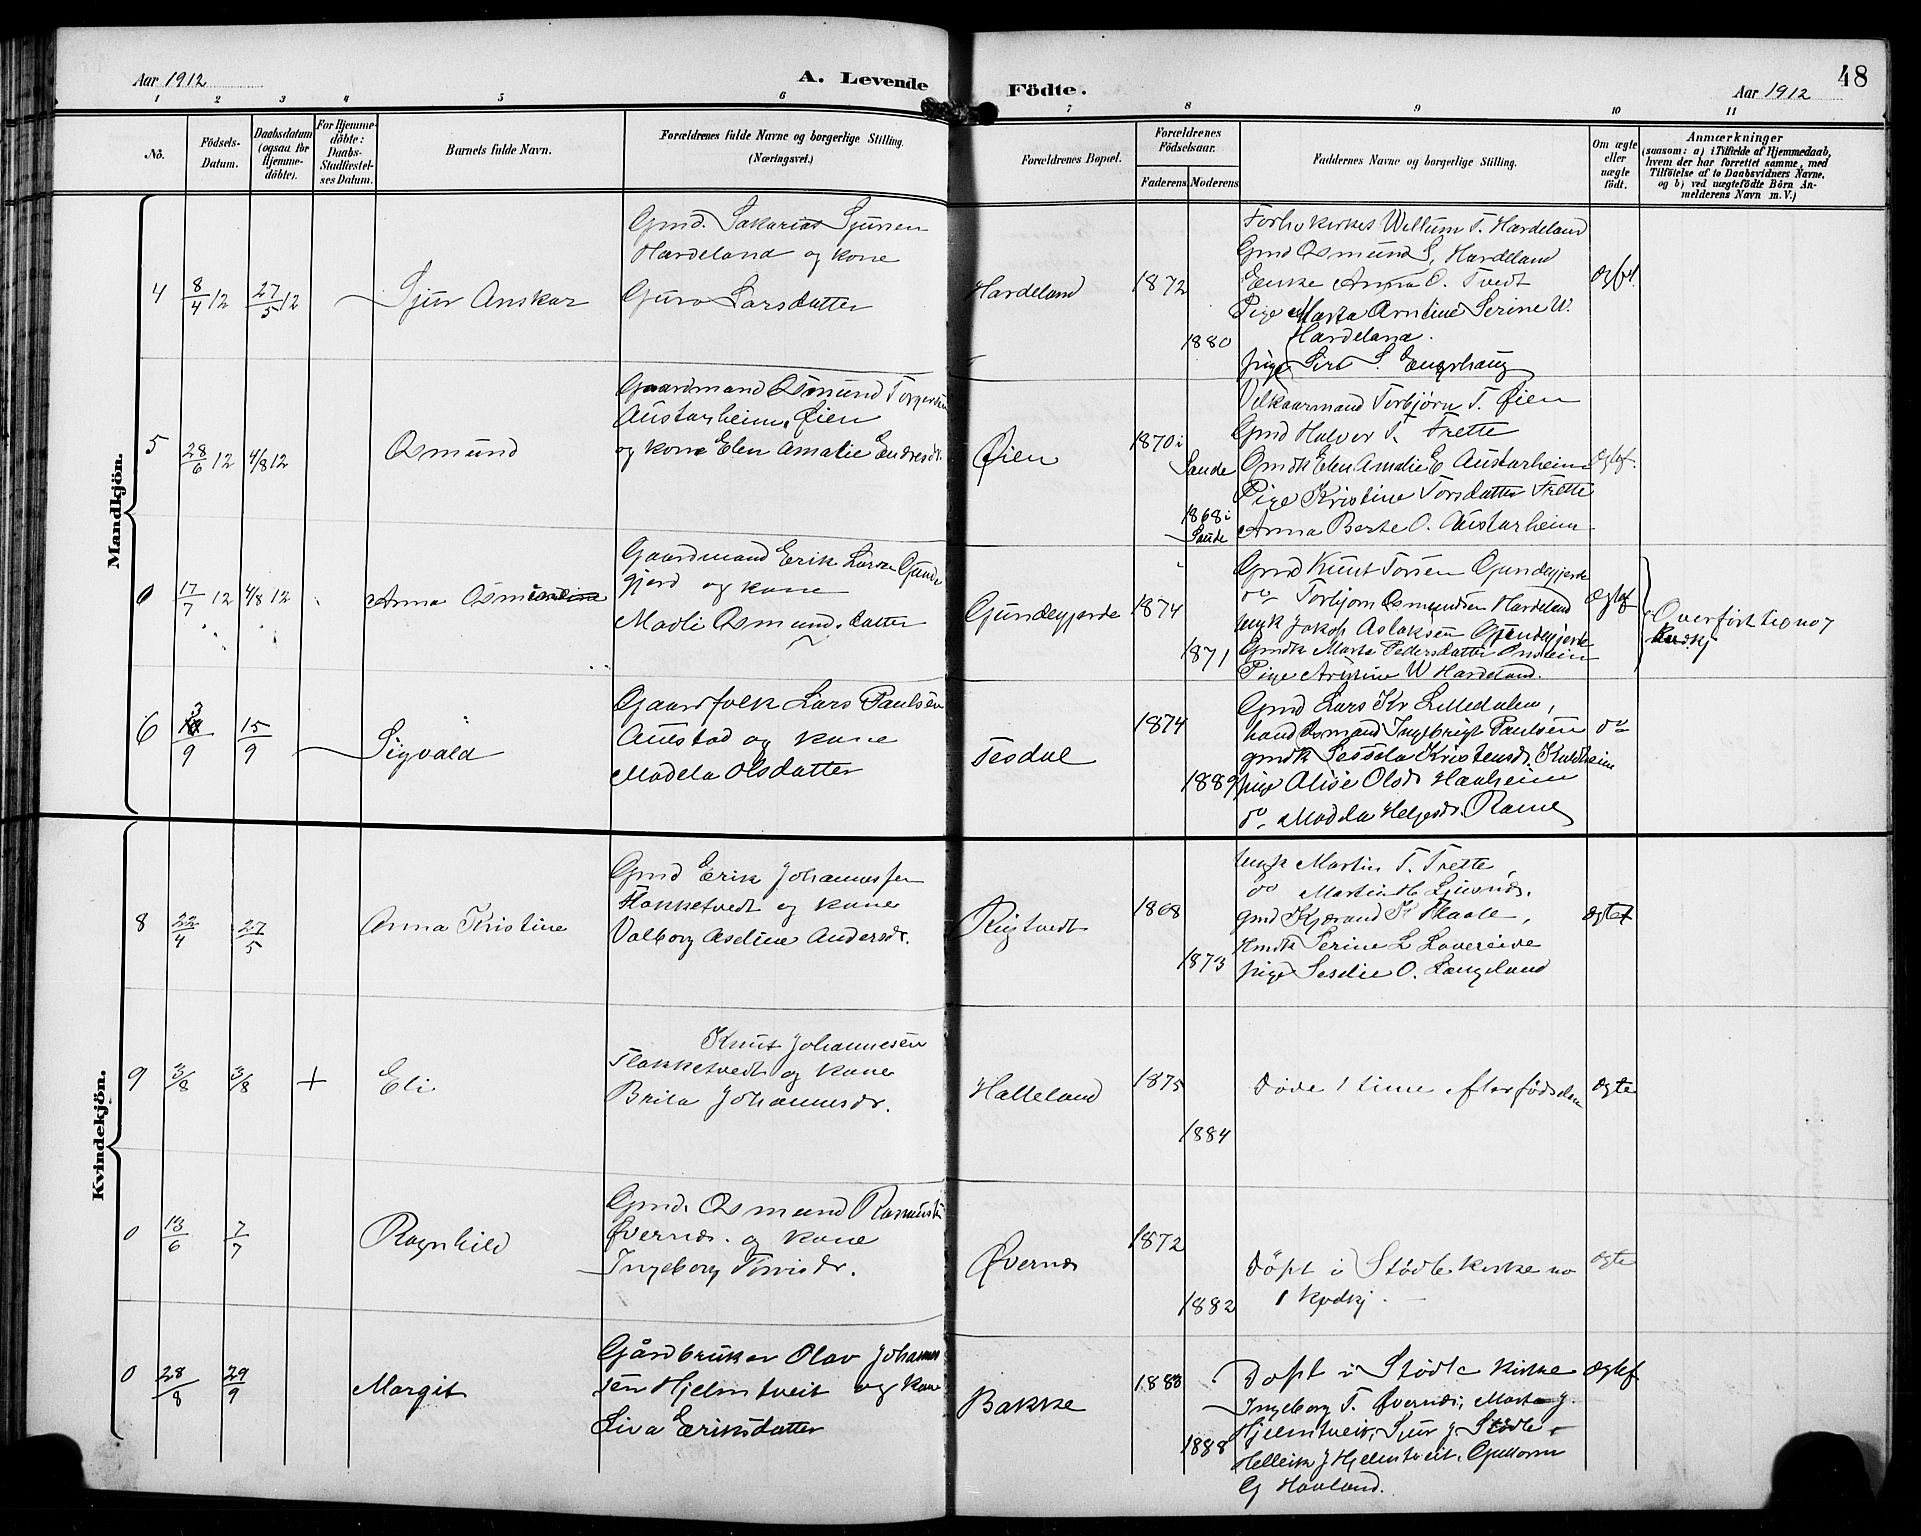 Aar 1912
A. Levende Födte.
Aar 1912
48
1 2 3 4 5 6 7 8 9 10 11
No.
Födsels-
Datum.
Daabsdatum
(ogsaa for
Hjemme-
döbte).
For Hjemme-
döbte:
Daabs-
Stadfæstel-
ses Datum.
Barnets fulde Navn.
Forældrenes fulde Navne og borgerlige Stilling.
(Næringsvei.)
Forældrenes Bopæl.
Forældrenes
Födselsaar.
Faderens
Moderens
Faddernes Navne og borgerlige Stilling.
Om ægte
eller
uægte
födt.
Anmærkninger
(saasom: a) i Tilfælde af Hjemmedaab,
hvem der har forrettet samme, med
Tilföielse af to Daabsvidners Navne,
og b) ved uægtefödte Börn An-
melderens Navn m. V.)
Mandkjön.
4
8/4 12
27/5 12
Sjur Anskar
Gmd. Sakarias Sjursen
Hardeland og kone
Guro Larsdatter
Hardeland
1872
1880
Willum T. Hardeland
Gmd Osmund S. Hardeland
Enke Anna O. Tvedt
Pige Marta Arntine Serine W.
Hardeland.
pige Siri S.
Ægf.
5
28/6 12
4/8 12
Osmund
Gaardmand Osmund Torgersen
Austarheim, Øien
og kone Elen Amalie Endresdt.
Øien
1870 i
Sande
1868 i
Sande
Vilkaarmand Torbjørn T. Øien
Gmd Halvor T. Frette
Gmdk Elen Amalie E Austarheim
Pige Kristine Torsdatter Frette
Anna Berte O. Austarheim
Ægtef.
0
17/7 12
4/8 12
Anna Osmundine
Gaardmand Erik Larsen Gunde
gjerd og kone
Madli Osmundsdatter
Gundegjerde
1874
1871
Gmd Knut Torsen Gundegjerde
do Torbjørn Osmundsen Hardeland
ungk Jakop Aslaksen Gundegjerde
Gmdk Marta Pedersdatter
Pige Kristine W Hardeland.
Ægtef
Overført til No 7
Kvdkj
6
3/9
15/9
Sigvald
Gaardfolk Lars Paulsen
Austad og kone
Madela Olsdatter
Tesdal
1874
1889
Gmd Lars Kr Lilledalen,
handelsmand Ingebrigt Paulsen
gmdk Sessela Kristensdt. Kaldheim
pige Alise Olsdt. Hauheim
do. Madela Helgesdt. Rame
do
Kvindekjön.
8
22/4
27/5
Anna Kristine
Gmd Erik Johannessen
Flokketvedt og kone
Valborg Aseline Andersdt.
Rigtvedt
1868
1873
Ungk Martin T. Frette,
do Martin H.
gmd Kjerand K Flaate,
Hmdk Serine L Lovereide
pige Seselie O. Langeland
Ægtef
9
3/8
3/8
+
Eli
Knut Johannesen
Flokketvedt og kone
Brita Johannesdt.
Halleland
1875
1884
Døde 1 time efter fødselen
Ægte
0
13/6
7/7
Ragnhild
Gmd. Osmund Rasmus
Øvernes. og kone
Ingeborg Torrisdt.
Øvernes
1872
1882
Døpt i Stødle kirke no
1 Kvdkj.
Ægte
0
28/8
29/9
Margit
Gårdbruker Olav Johannes
sen Hjelmtveit og kone
Siva Eriksdatter
Bakke
1883
1888
Døpt i Stødle Kirke
Ingeborg T. Øvernes, Marta J.
Hjelmtveit, Sjur J Stødle,
Hellik J Hjelmtveit, Guttorm
G Haaland.
Ægtef